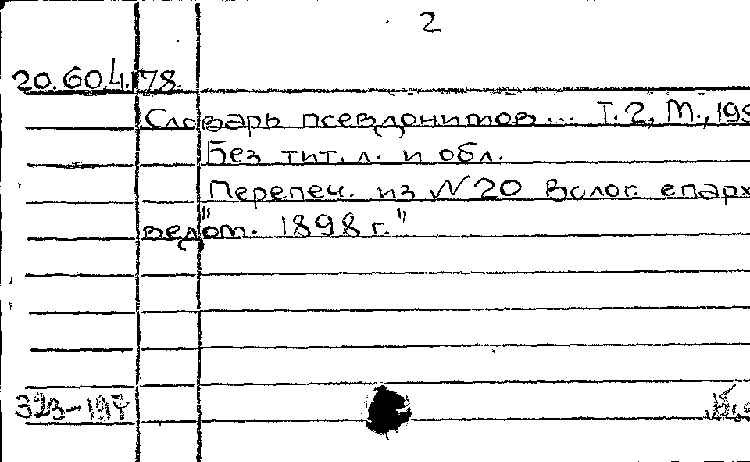 2
20.604.178.
Словарь псевдонимов... Т. 2, М.,
Без тит. л. и обл.
"Перепеч. из N 20 Волог. епарх
ведом. 1898 г."